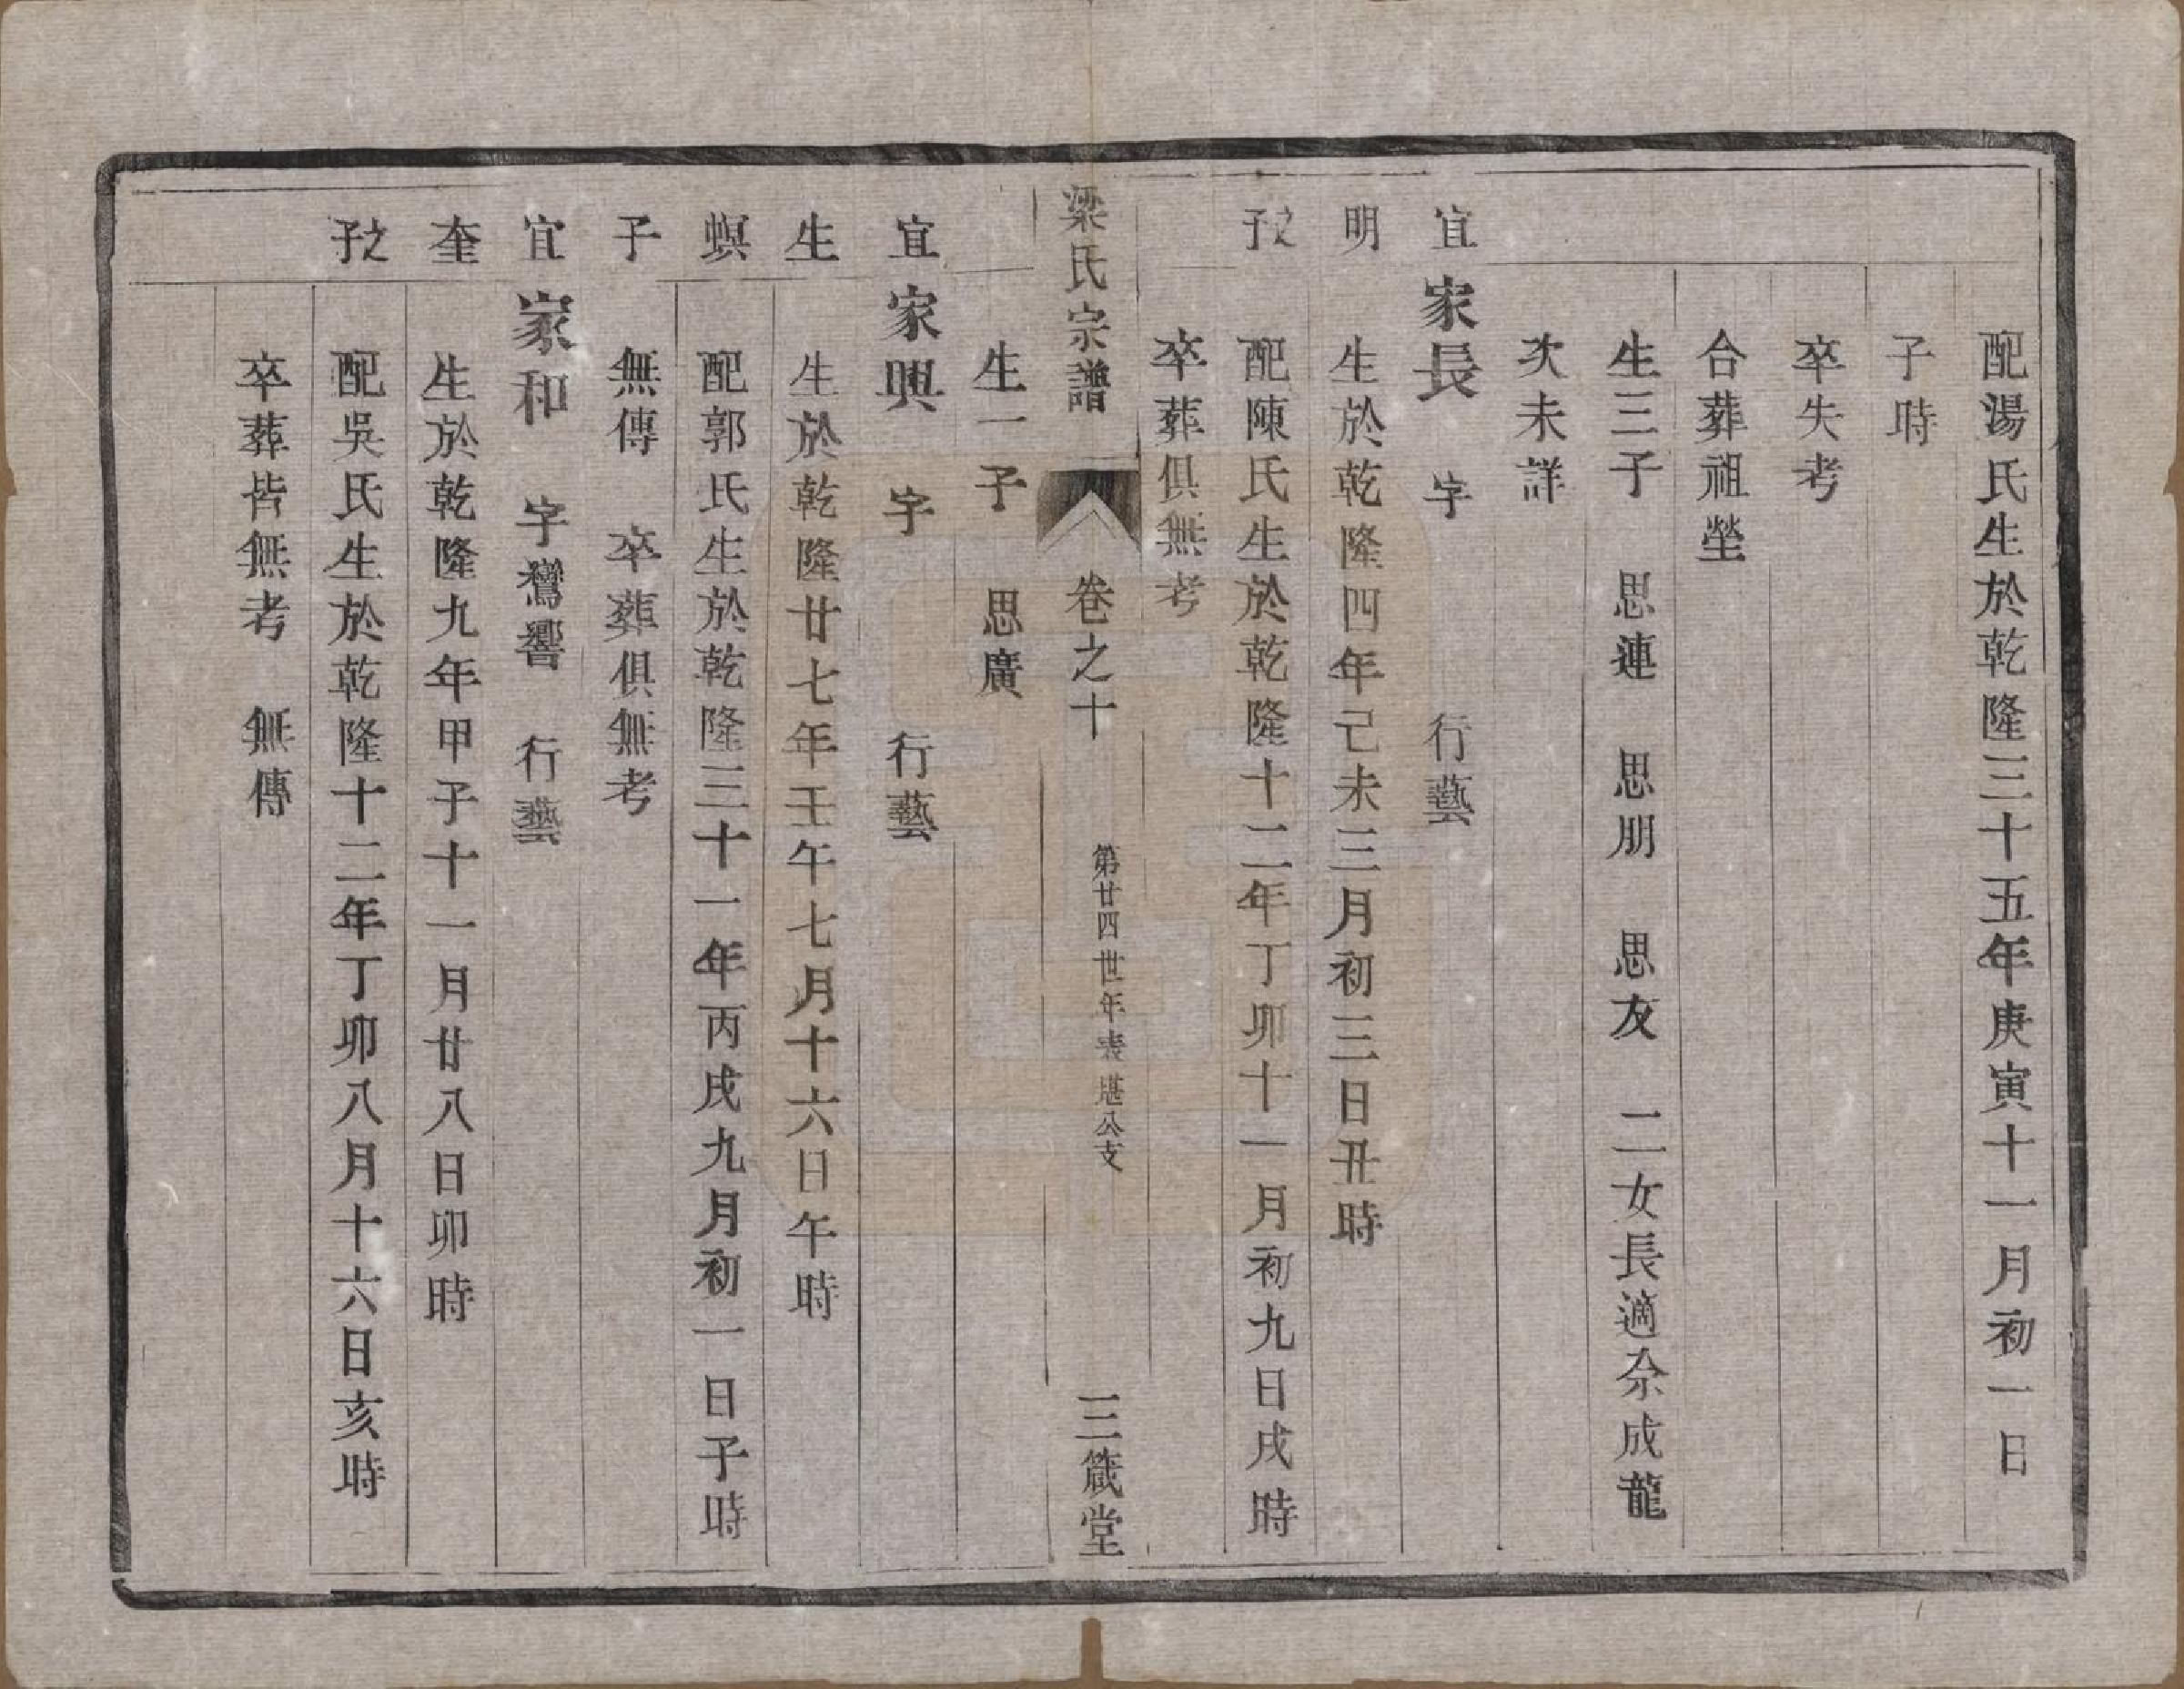 配湯氏生於乾隆三十五年庚寅十一月初一日
子時
卒失考
合葬祖塋
生三子 思連 思朋 思友 二女長適佘成龍
次未詳
宜 家長 字 行藝
明 生於乾隆四年己未三月初三日丑時
之子 配陳氏生於乾隆十二年丁卯十一月初九日戌時
卒葬俱無考
梁氏宗譜 卷之十 第廿四世年表 堪公支 三箴堂
生一子 思廣
宜 家興 字 行藝
生 生於乾隆廿七年壬午七月十六日午時
蜈 配郭氏生於乾隆三十一年丙戌九月初一日子時
子 無傳 卒葬俱無考
宜 家和 字鸞響 行藝
奎 生於乾隆九年甲子十一月廿八日卯時
之子 配吳氏生於乾隆十二年丁卯八月十六日亥時
卒葬皆無考 無傳